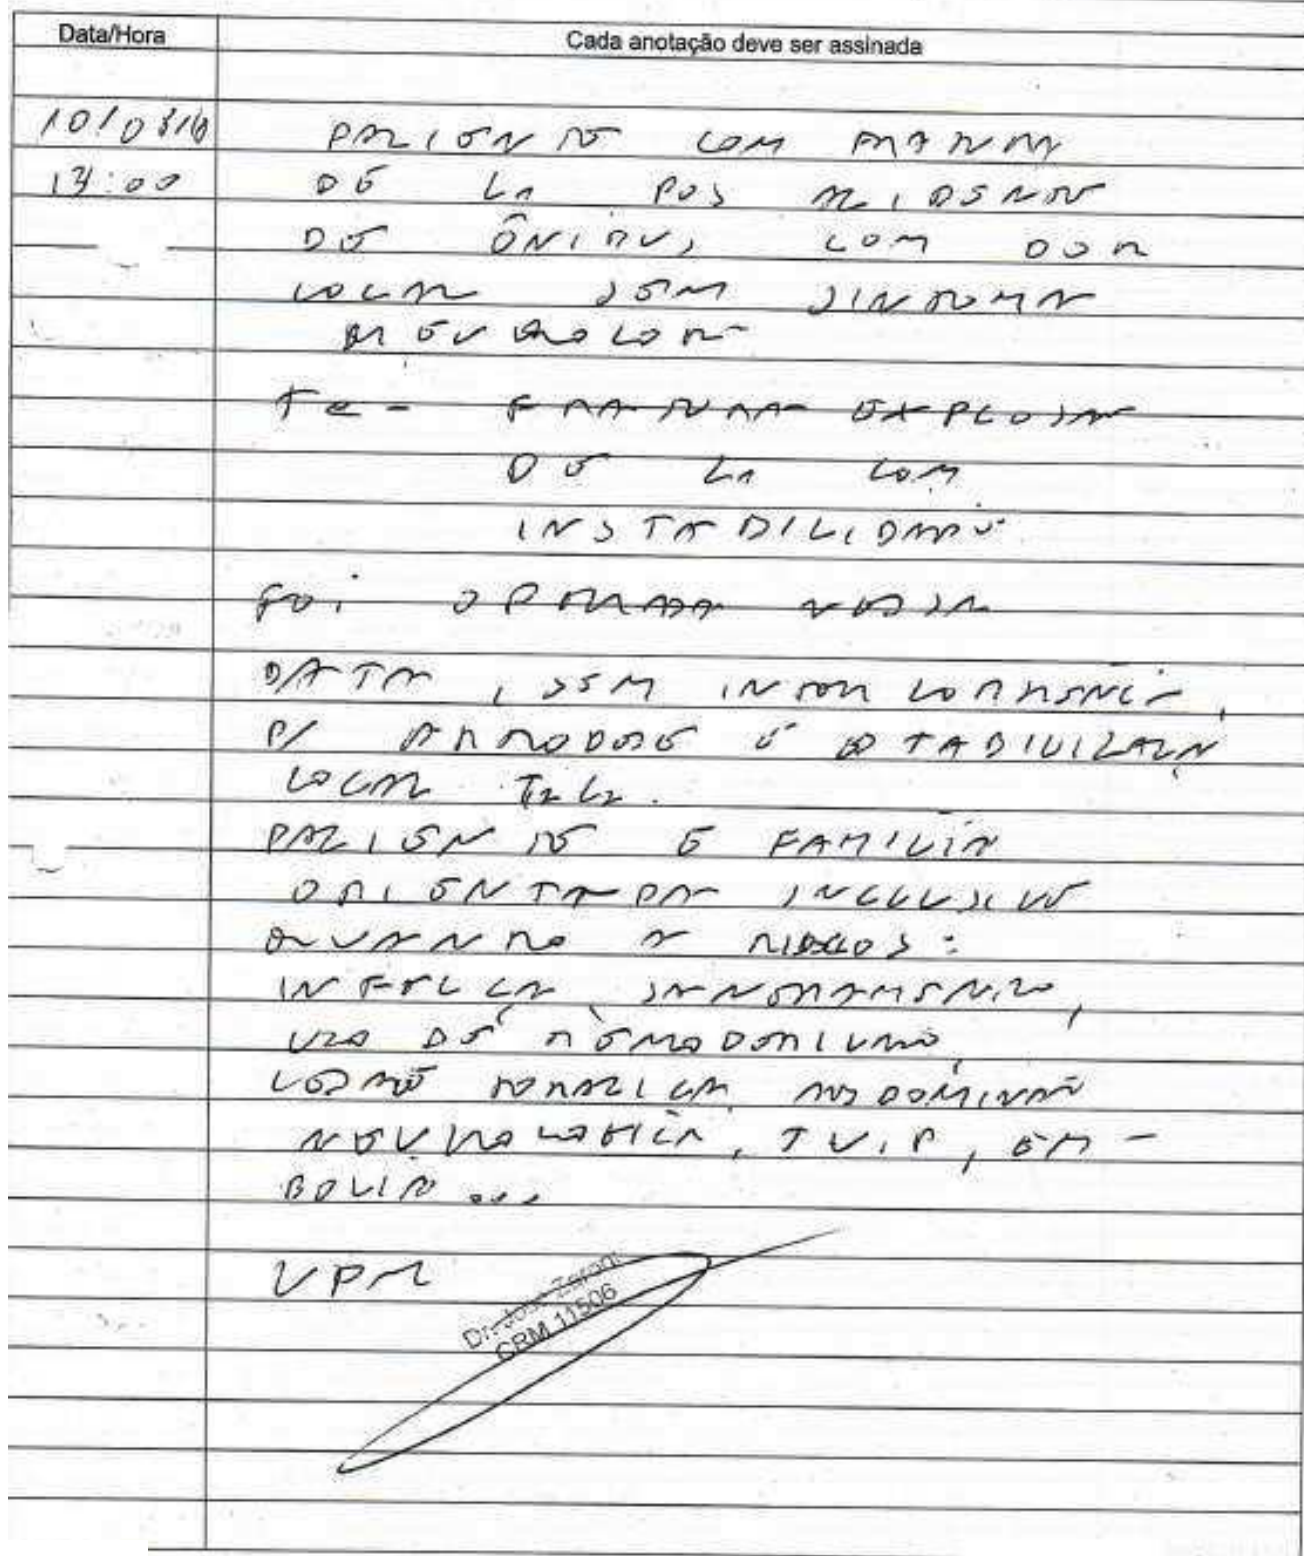 Data/Hora Cada anotação deve ser assinada
PACIENTE COM
DE L1 POS ACIDENTE
DE ÔNIBUS, COM DOR
LOCAL SEM SINTOMA
NEUROLOGICO
TC - FRATURA EXPLOSAO
DE L1 COM
INSTABILIDADE
FOI OPERADA NESSA
DATA, SEM INTERCORRENCIA,
P/ ARTRODESE E ESTABILIZAÇÃO
LOCAL T12 L2.
PACIENTE E FAMILIA
ORIENTADA INCLUSIVE
QUANTO A RISCOS:
INFECÇÃO, SANGRAMENTO,
USO DE HEMODERIVADO,
LESÃO TORACICA, ABDOMINAL
NEUROLOGICA, TVP, EM-
BOLIA ...
VPM
CRM 11506